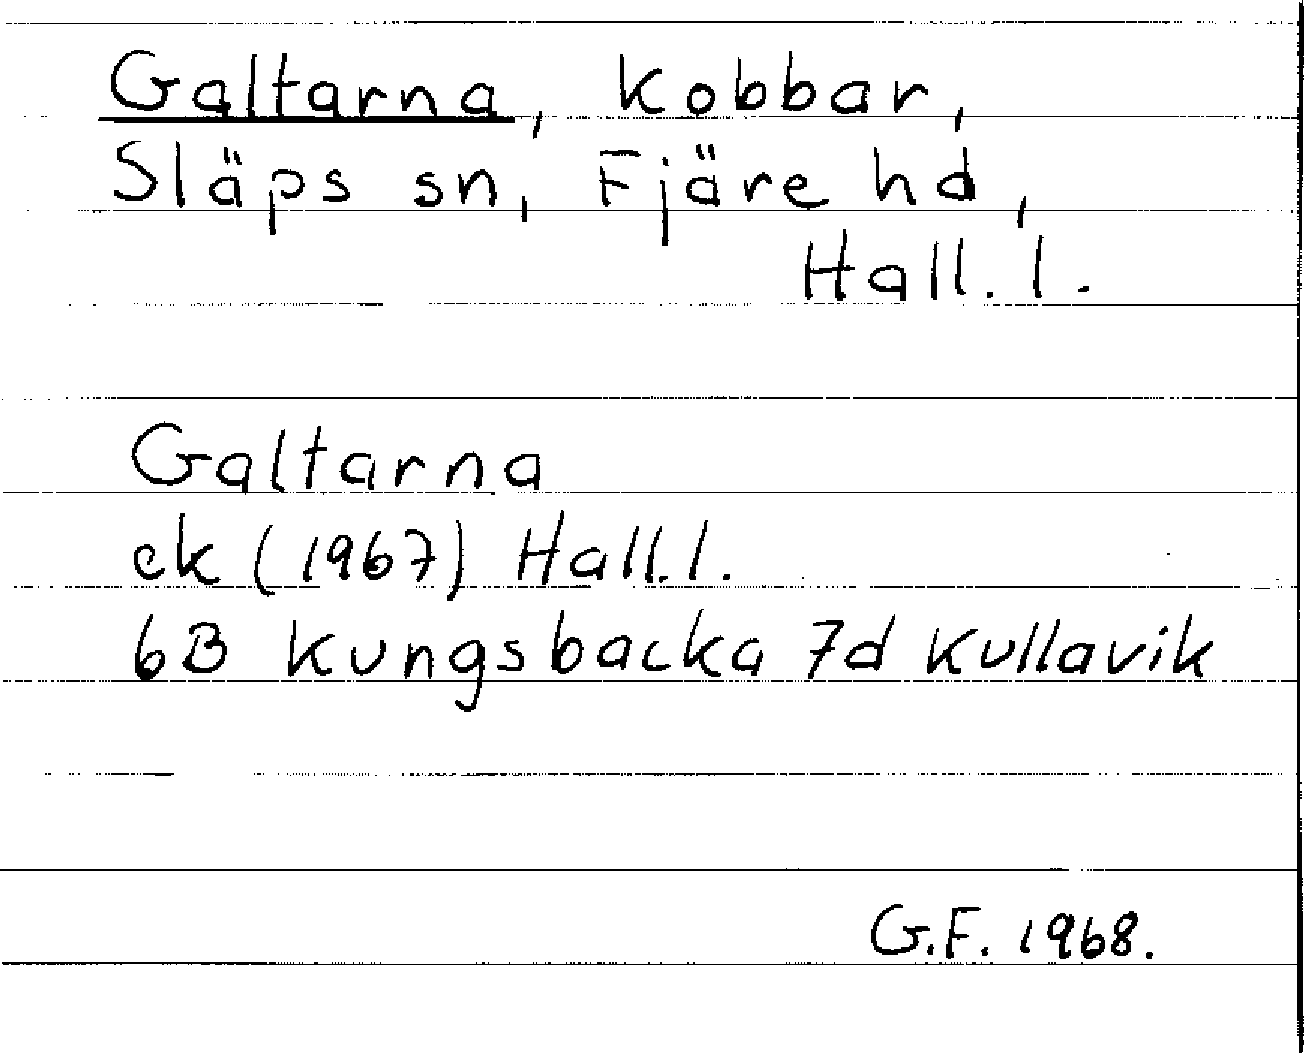 Galtarna, Kobbar,
Släps sn, Fjäre hd,
Hall. l.
Galtarna
ek (1967) Hall. l.
6B Kungsbacka 7d Kullavik
G.F. 1968.